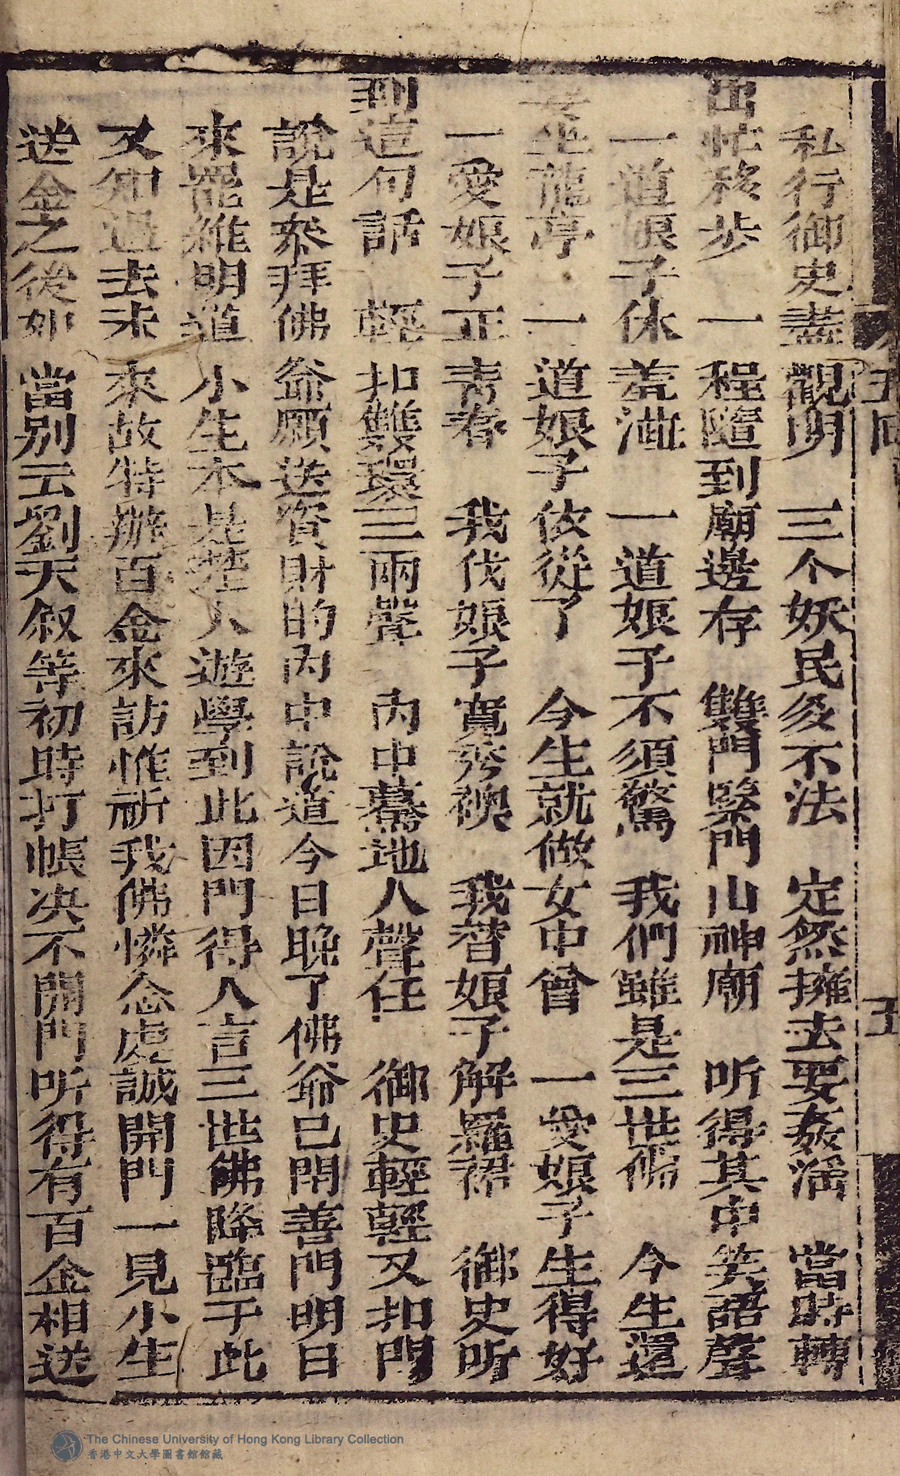 私行御史盡觀明　三个妖民多不法　定然擁去要姦淫　當時轉
出忙移步　一程隨到廟邊存　雙門緊門山神廟　听得其中笑語聲
一道娘子休羞澁　一道娘子不須驚　我們雖是三世佛　今生還
要坐龍亭　一道娘子依從了　今生就做女中曾　一愛娘子生得好
一愛娘子正青春　我伐娘子寬秀襖　我替娘子解羅裙　御史所
到這句話　輕扣雙環三兩聲　內中驀地人聲任　御史輕輕又扣門
說是來拜佛爺願送資財的內中說道今日晚了佛爺已閉善門明日
來罷維明道小生本是楚人遊學到此因門得人言三世佛降臨于此
又知過去未來故特辦百金來訪惟祈我佛憐念處誠開門一見小生
送金之後如當别云劉天叙等初時打帳决不開門听得有百金相送
五回
五
The Chinese University of Hong Kong Library Collection
香港中文大學圖書館館藏